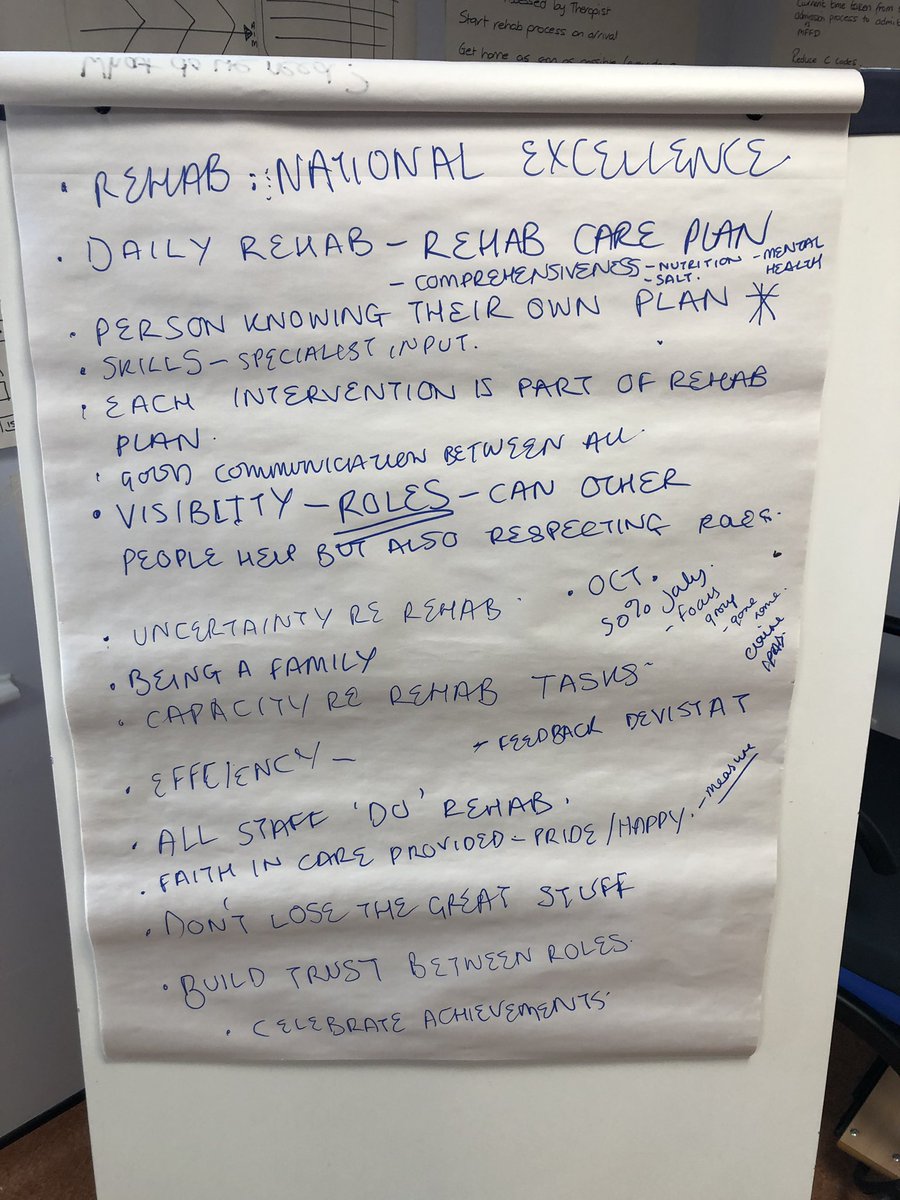 Assessed by Therapist
Start rehab process on arrival
Get home as
Current time taken from
admission process to admit
MFFD
Reduce C Codes
What do we need?
• REHAB : NATIONAL EXCELLENCE
• DAILY REHAB – REHAB CARE PLAN
– COMPREHENSIVENESS – NUTRITION – MENTAL HEALTH
– SALT.
• PERSON KNOWING THEIR OWN PLAN *
• SKILLS – SPECIALIST INPUT.
• EACH INTERVENTION IS PART OF REHAB
PLAN.
• GOOD COMMUNICATION BETWEEN ALL.
• VISIBLITY – ROLES – CAN OTHER
PEOPLE HELP BUT ALSO RESPECTING ROLES.
• UNCERTAINTY RE REHAB.
• OCT.
50% July.
– Focus
group
– gone
home.
• BEING A FAMILY
• CAPACITY RE REHAB TASKS –
– FEEDBACK DEVISTAT
• EFFCIENCY –
• ALL STAFF 'DO' REHAB.
• FAITH IN CARE PROVIDED – PRIDE / HAPPY. – measure
• DON'T LOSE THE GREAT STUFF
• BUILD TRUST BETWEEN ROLES.
• CELEBRATE ACHIEVEMENTS.